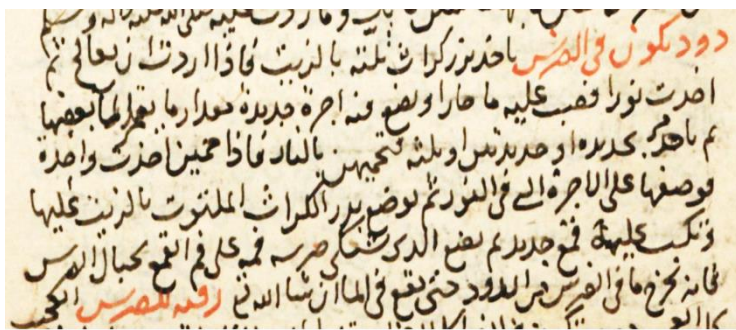 دود يكون فى الضرس ياخذ بزر كراث تلته بالزيت فاذا اردت ان تعالج ثم
اخذت تورا فصب عليه ما حارا و تضع فيه اجرة جديدة مقدار ما يغمر الما بعضها
ثم تاخذ حديده او حديدتين او ثلثه فتحميهن بالنار فاذا حمين اخذت واحدة
فوضعها على الاجرة التى فى التور ثم توضع بزر الكراث الملتوت بالزيت عليها
وتكب عليها قمع جديد ثم يضع الذى يشتكى ضرسه فمه على فم القمع بحيال الضرس
فانه يخرج ما فى الضرس من الدود حتى يقع فى الما ان شا الله تع رقيه للضرس